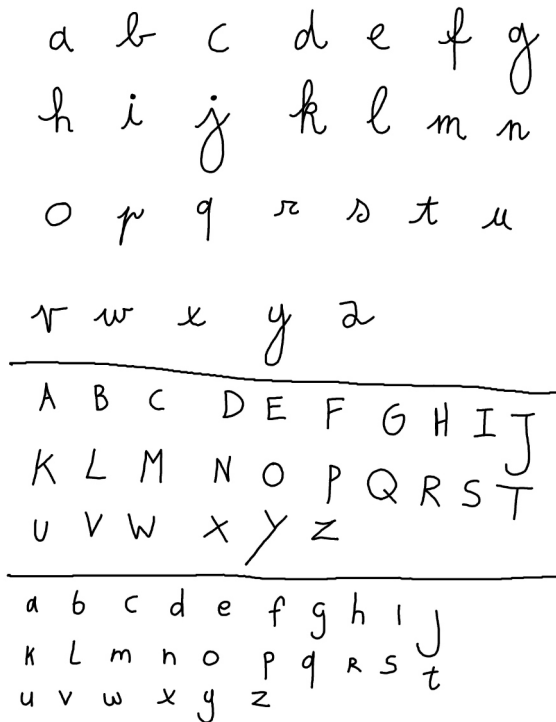 a b c d e f g
h i j k l m n
o p q r s t u
v w x y z
A B C D E F G H I J
K L M N O P Q R S T
U V W X Y Z
a b c d e f g h i j
k L m n o p q R s t
u v w x y z